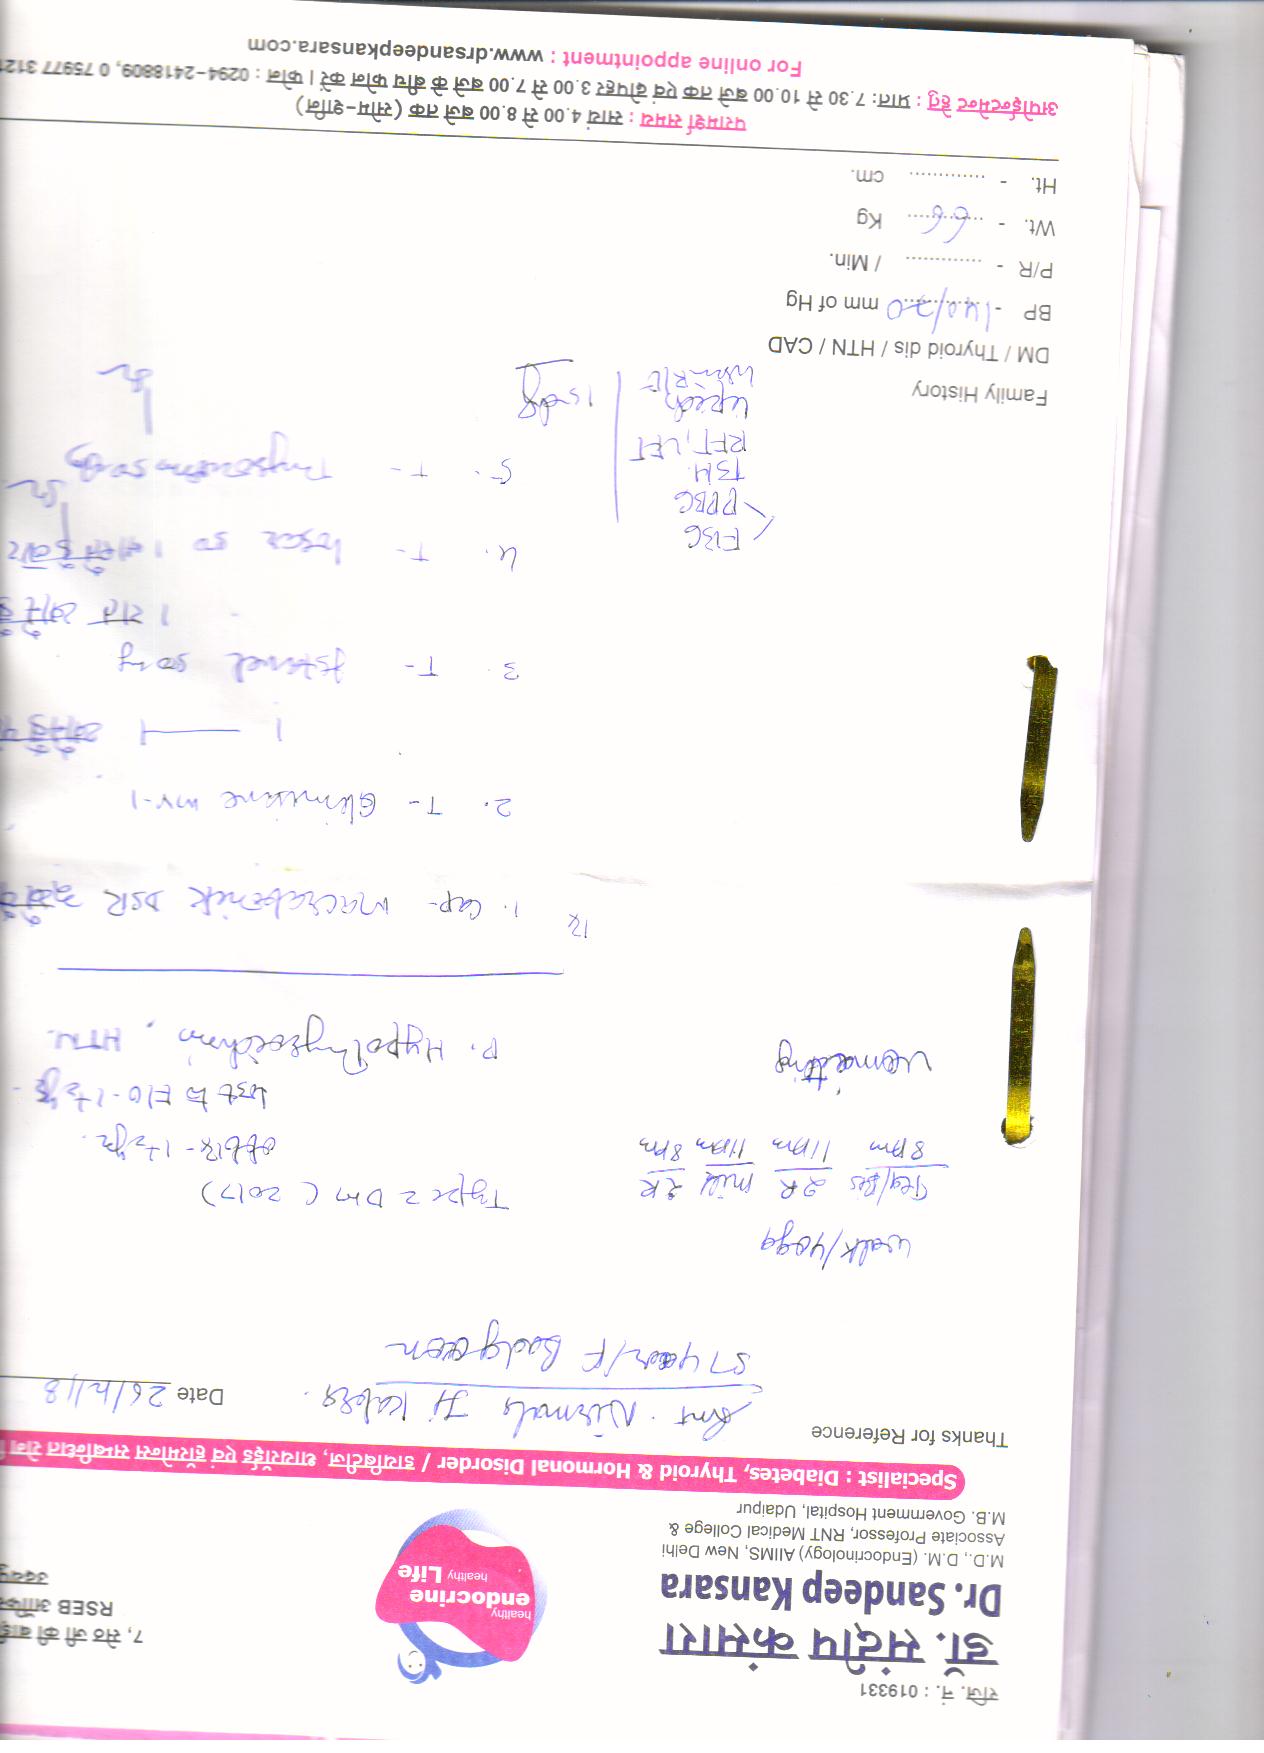 रजि. नं. : 019331
डॉ. संदीप कंसारा
Dr. Sandeep Kansara
M.D., D.M. (Endocrinology) AIIMS, New Delhi
Associate Professor, RNT Medical College &
M.B. Government Hospital, Udaipur
healthy
endocrine
healthy Life
7, सेठ जी की बाड़ी
RSEB ऑफिस
Specialist : Diabetes, Thyroid & Hormonal Disorder / डायबीटीज, थायरॉईड एवं हॉरमोन्स सम्बन्धित रोग
Thanks for Reference
Smt. Nirmala Ji
Date 26/12/18
57 year/F
walk/yoga
Type 2 DM (2017)
Tea/Bis 2R milk 2R
8 Am 11 Am 11 pm 8 pm
off Rx - 1 1/2 yr.
Lost to F/O - 1 1/2 yr
vomiting
P. Hypothyroidism, HTN.
Rx 1. Cap- DSR
2. T- MV-1
1 — 1
3. T- 50 mg
1 रात
4. T- 50
5. T- Thyronorm 50
FBG
PPBG
TSH
RFT, LFT
Lipid
Urine R/E
15 days
Family History
DM / Thyroid dis / HTN / CAD
BP - 140/70 mm of Hg
P/R - ............. / Min.
Wt. - 66 Kg
Ht. - ............. cm.
परामर्श समय : सायं 4.00 से 8.00 बजे तक (सोम-शनि)
अपॉईन्टमेन्ट हेतु : प्रातः 7.30 से 10.00 बजे तक एवं दोपहर 3.00 से 7.00 बजे के बीच फोन करें । फोन : 0294-2418809, 0 75977 3121
For online appointment : www.drsandeepkansara.com